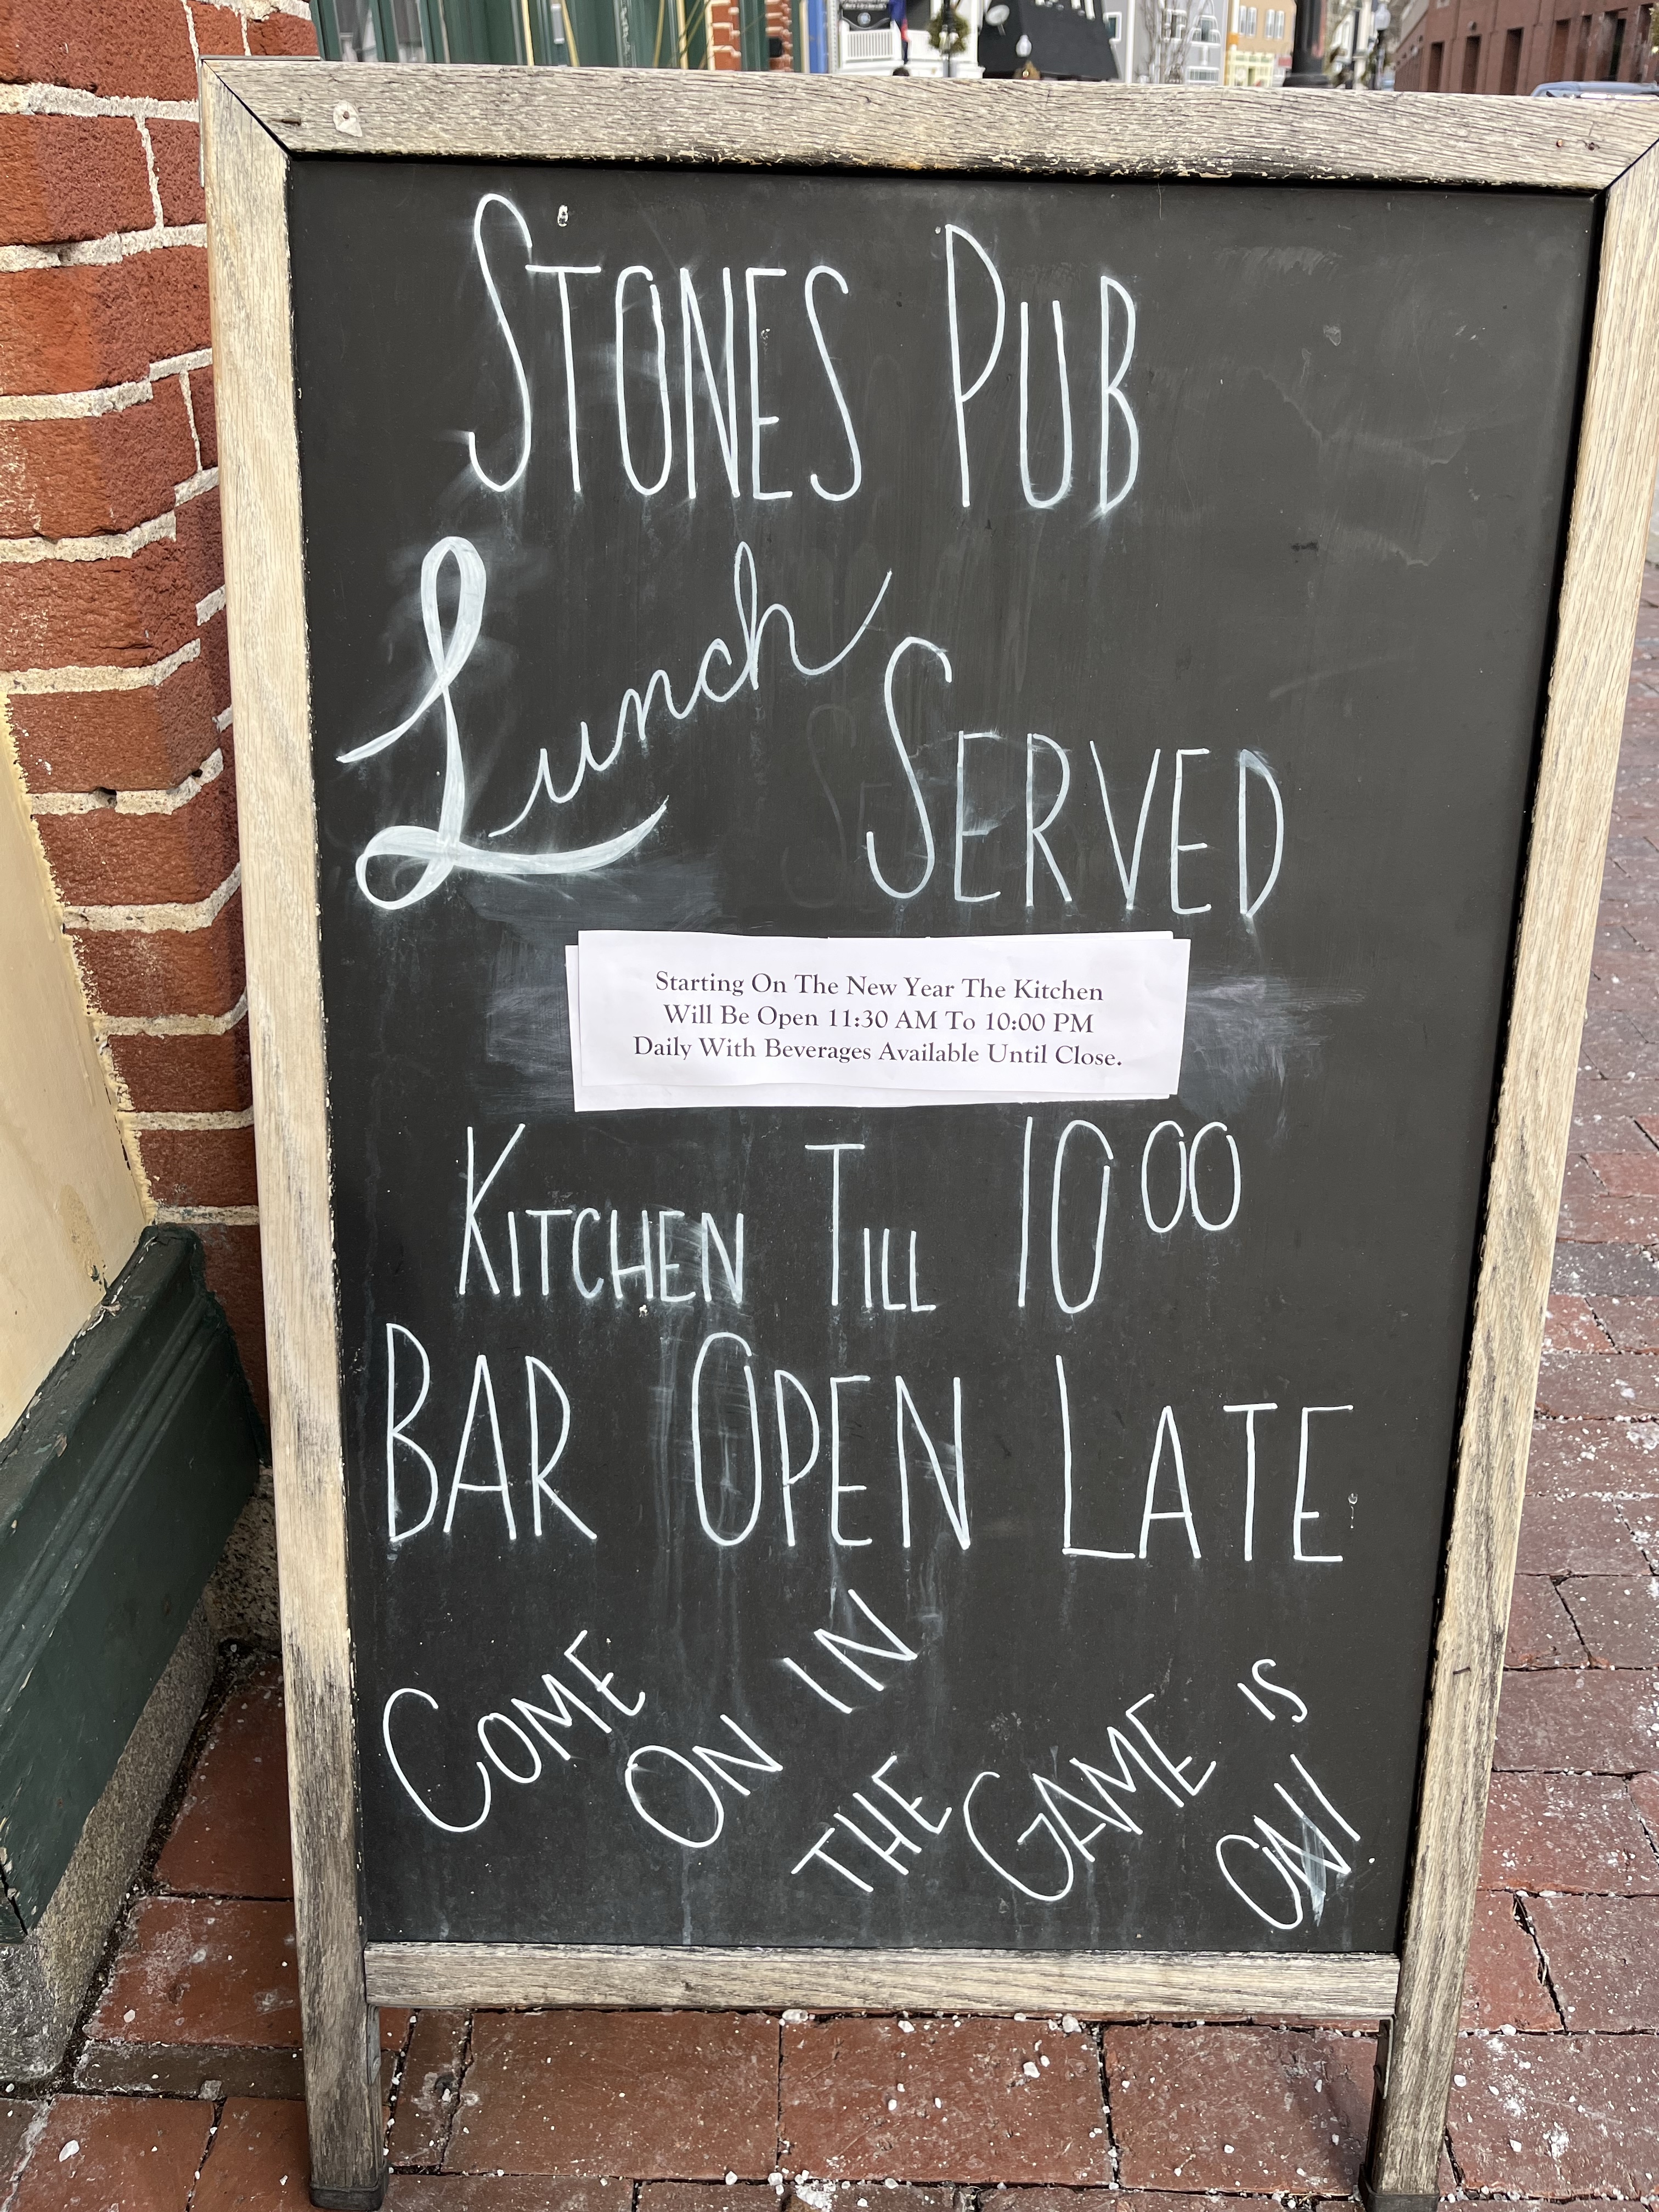 STONES PUB
Lunch SERVED
Starting On The New Year The Kitchen
Will Be Open 11:30 AM To 10:00 PM
Daily With Beverages Available Until Close.
KITCHEN TILL 10 00
BAR OPEN LATE
COME ON IN
THE GAME IS ON!